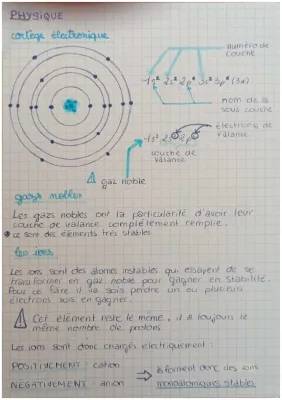 PHYSIQUE
cortège électronique
numéro de couche
1s² 2s² 2p⁶ 3s² 3p⁶ (3d)
nom de la sous couche
électrons de valance
1s² 2s² 2p⁶
couche de valance
gaz noble
gazs nobles
Les gazs nobles ont la particularité d'avoir leur
couche de valance complètement remplie.
ce sont des éléments très stables
les ions
Les ions sont des atomes instables qui essayent de se
transformer en gaz noble pour gagner en stabilité.
Pour ce faire il va sois perdre un ou plusieurs
électrons, sois en gagner.
Cet élément reste le même, il a toujours le
même nombre de protons
Les ions sont donc chargés électriquement :
POSITIVEMENT : cation
NÉGATIVEMENT : anion
ils forment donc des ions
monoatomiques stables